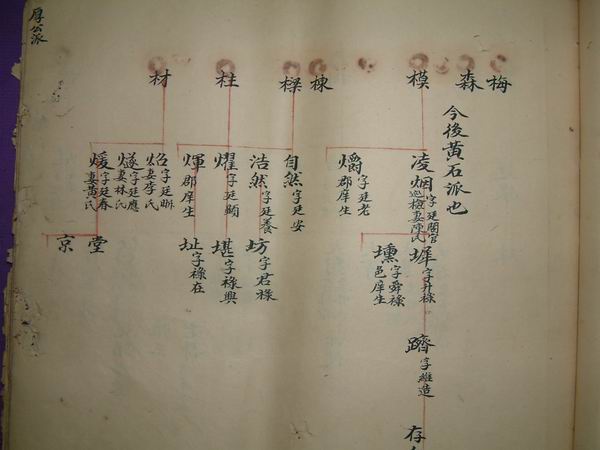 厚公派
梅
森
今後黃石派也
模
棟
樑
柱
材
凌烟 字廷閣官巡檢妻陳氏
爝 字廷老郡庠生
自然 字廷安
浩然 字廷養
燿 字廷顯
輝 郡庠生
炤 字廷昕妻李氏
燧 字廷應妻林氏
煖 字廷春妻黃氏
墀 字升祿
壎 字舜祿邑庠生
坊 字君祿
堪 字祿興
址 字祿在
堂
京
躋 字維造
存